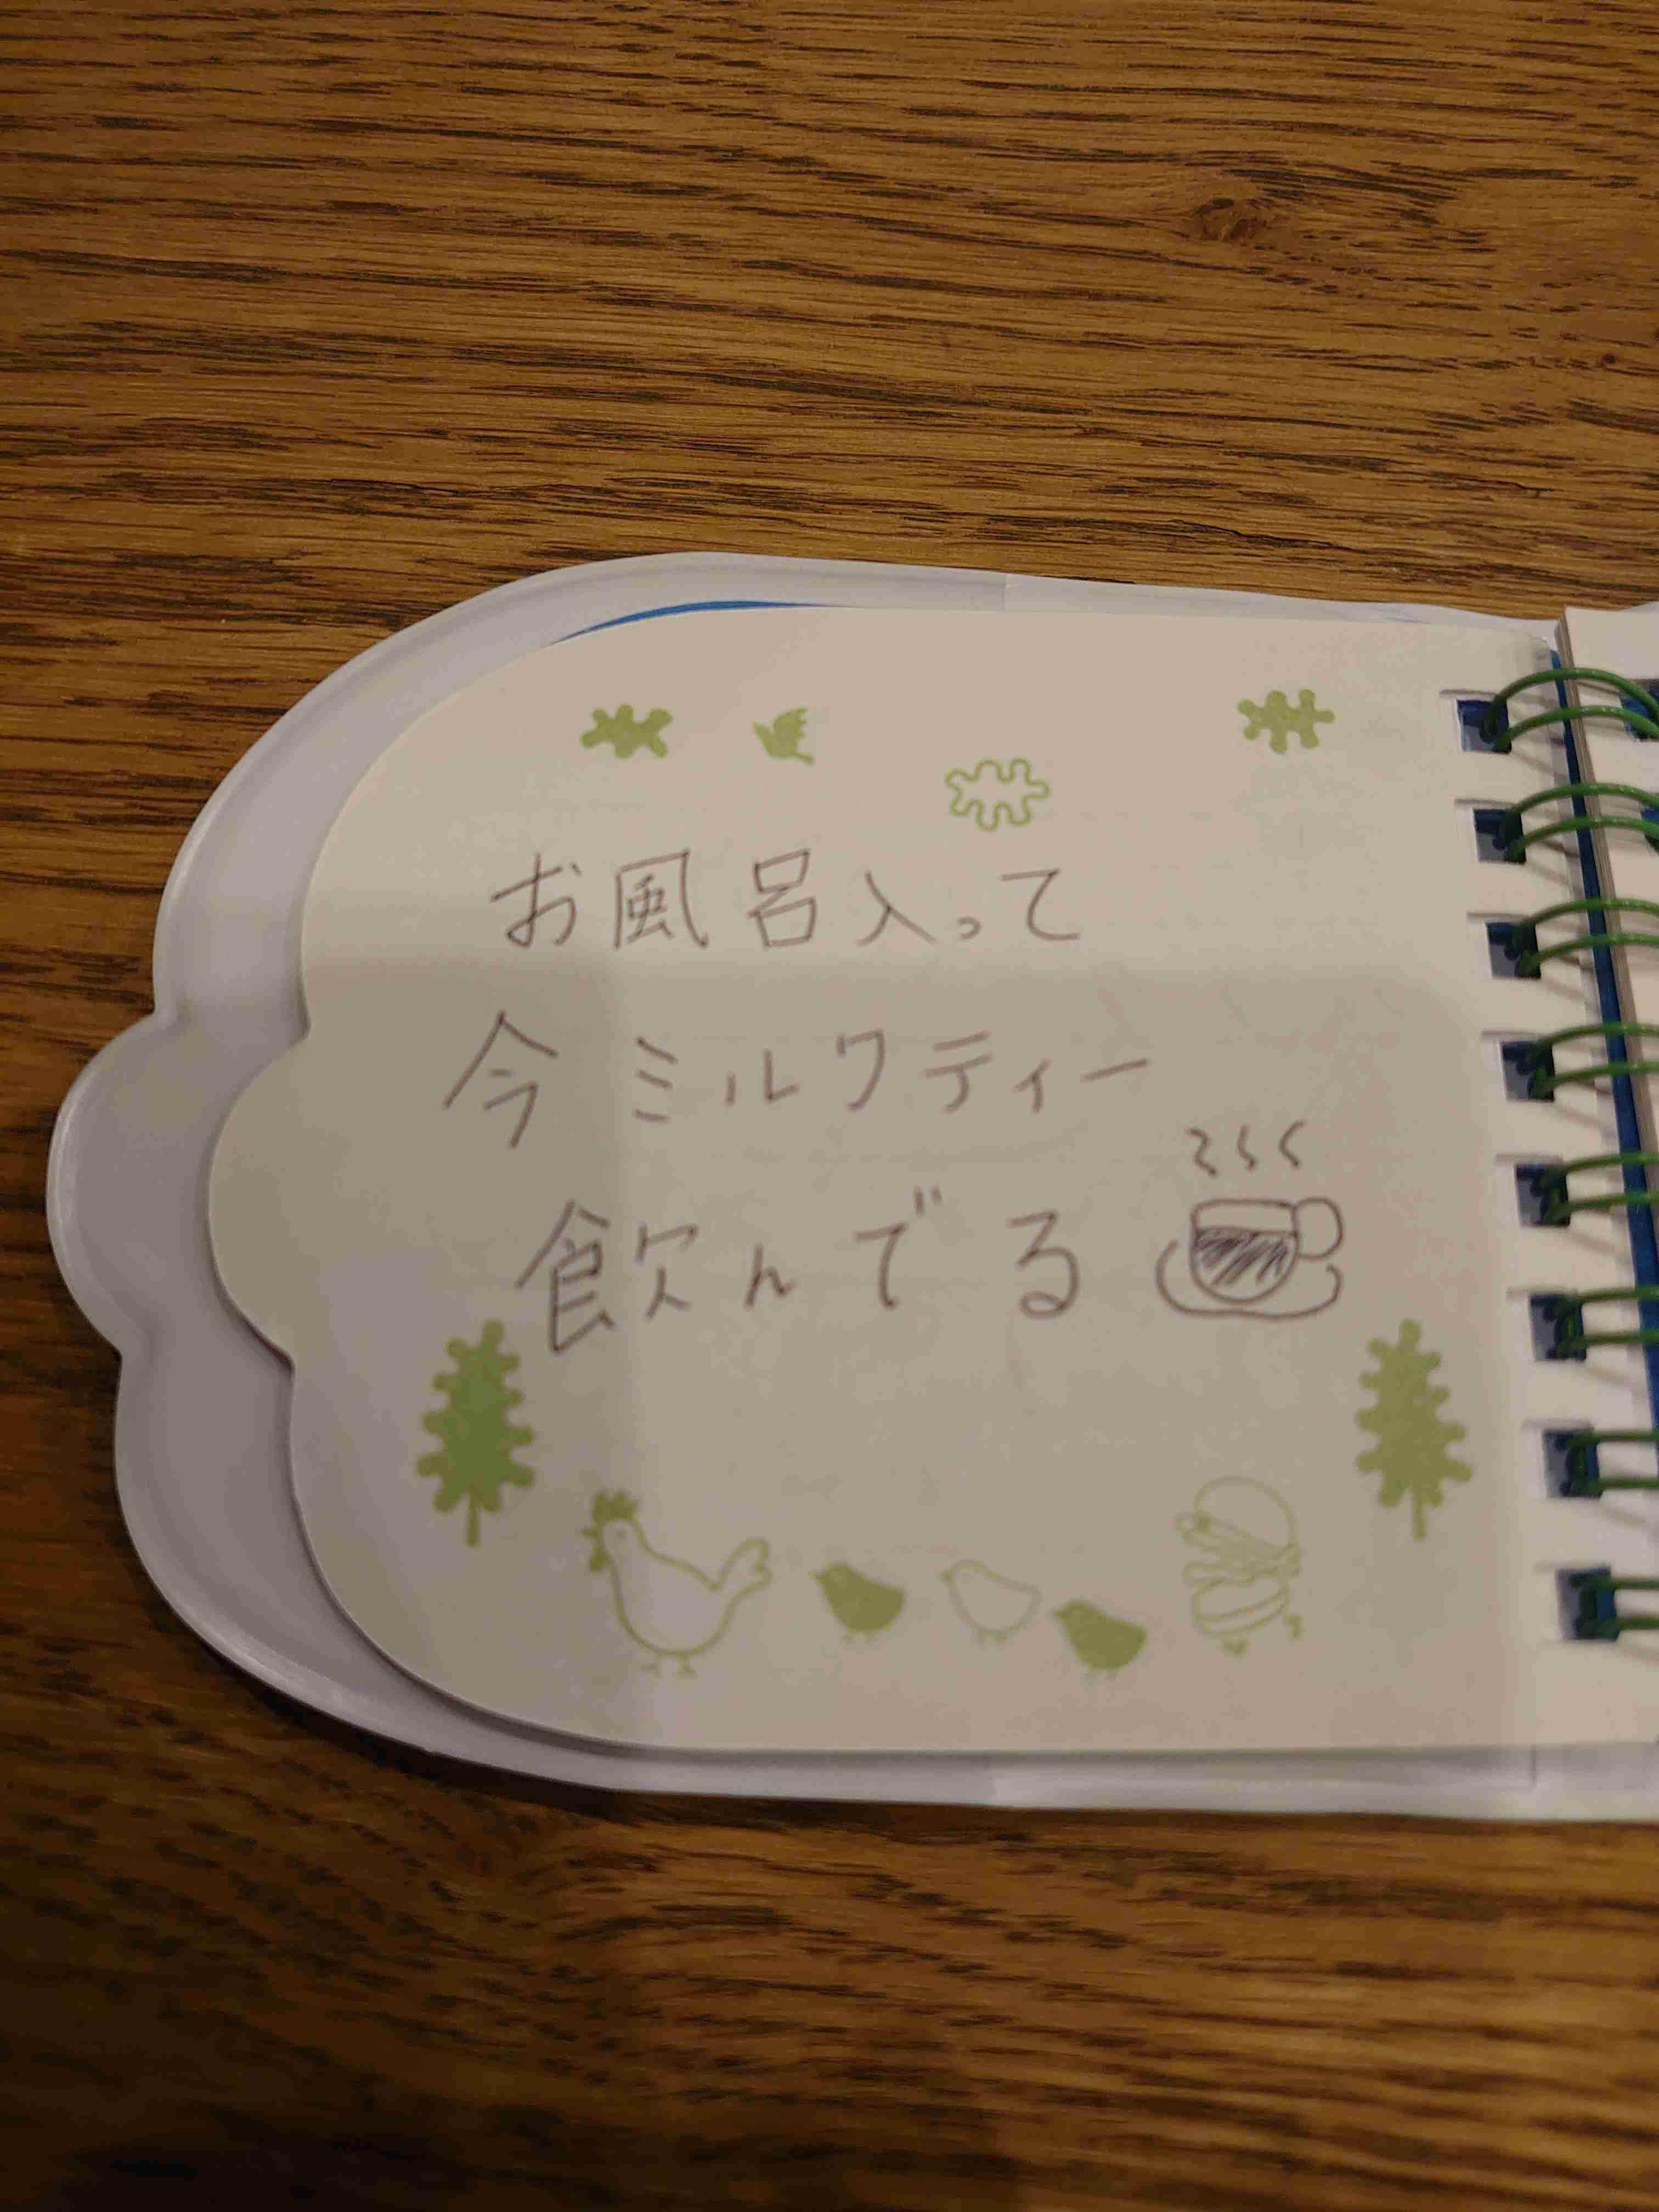 お風呂入って
今ミルクティー
飲んでる